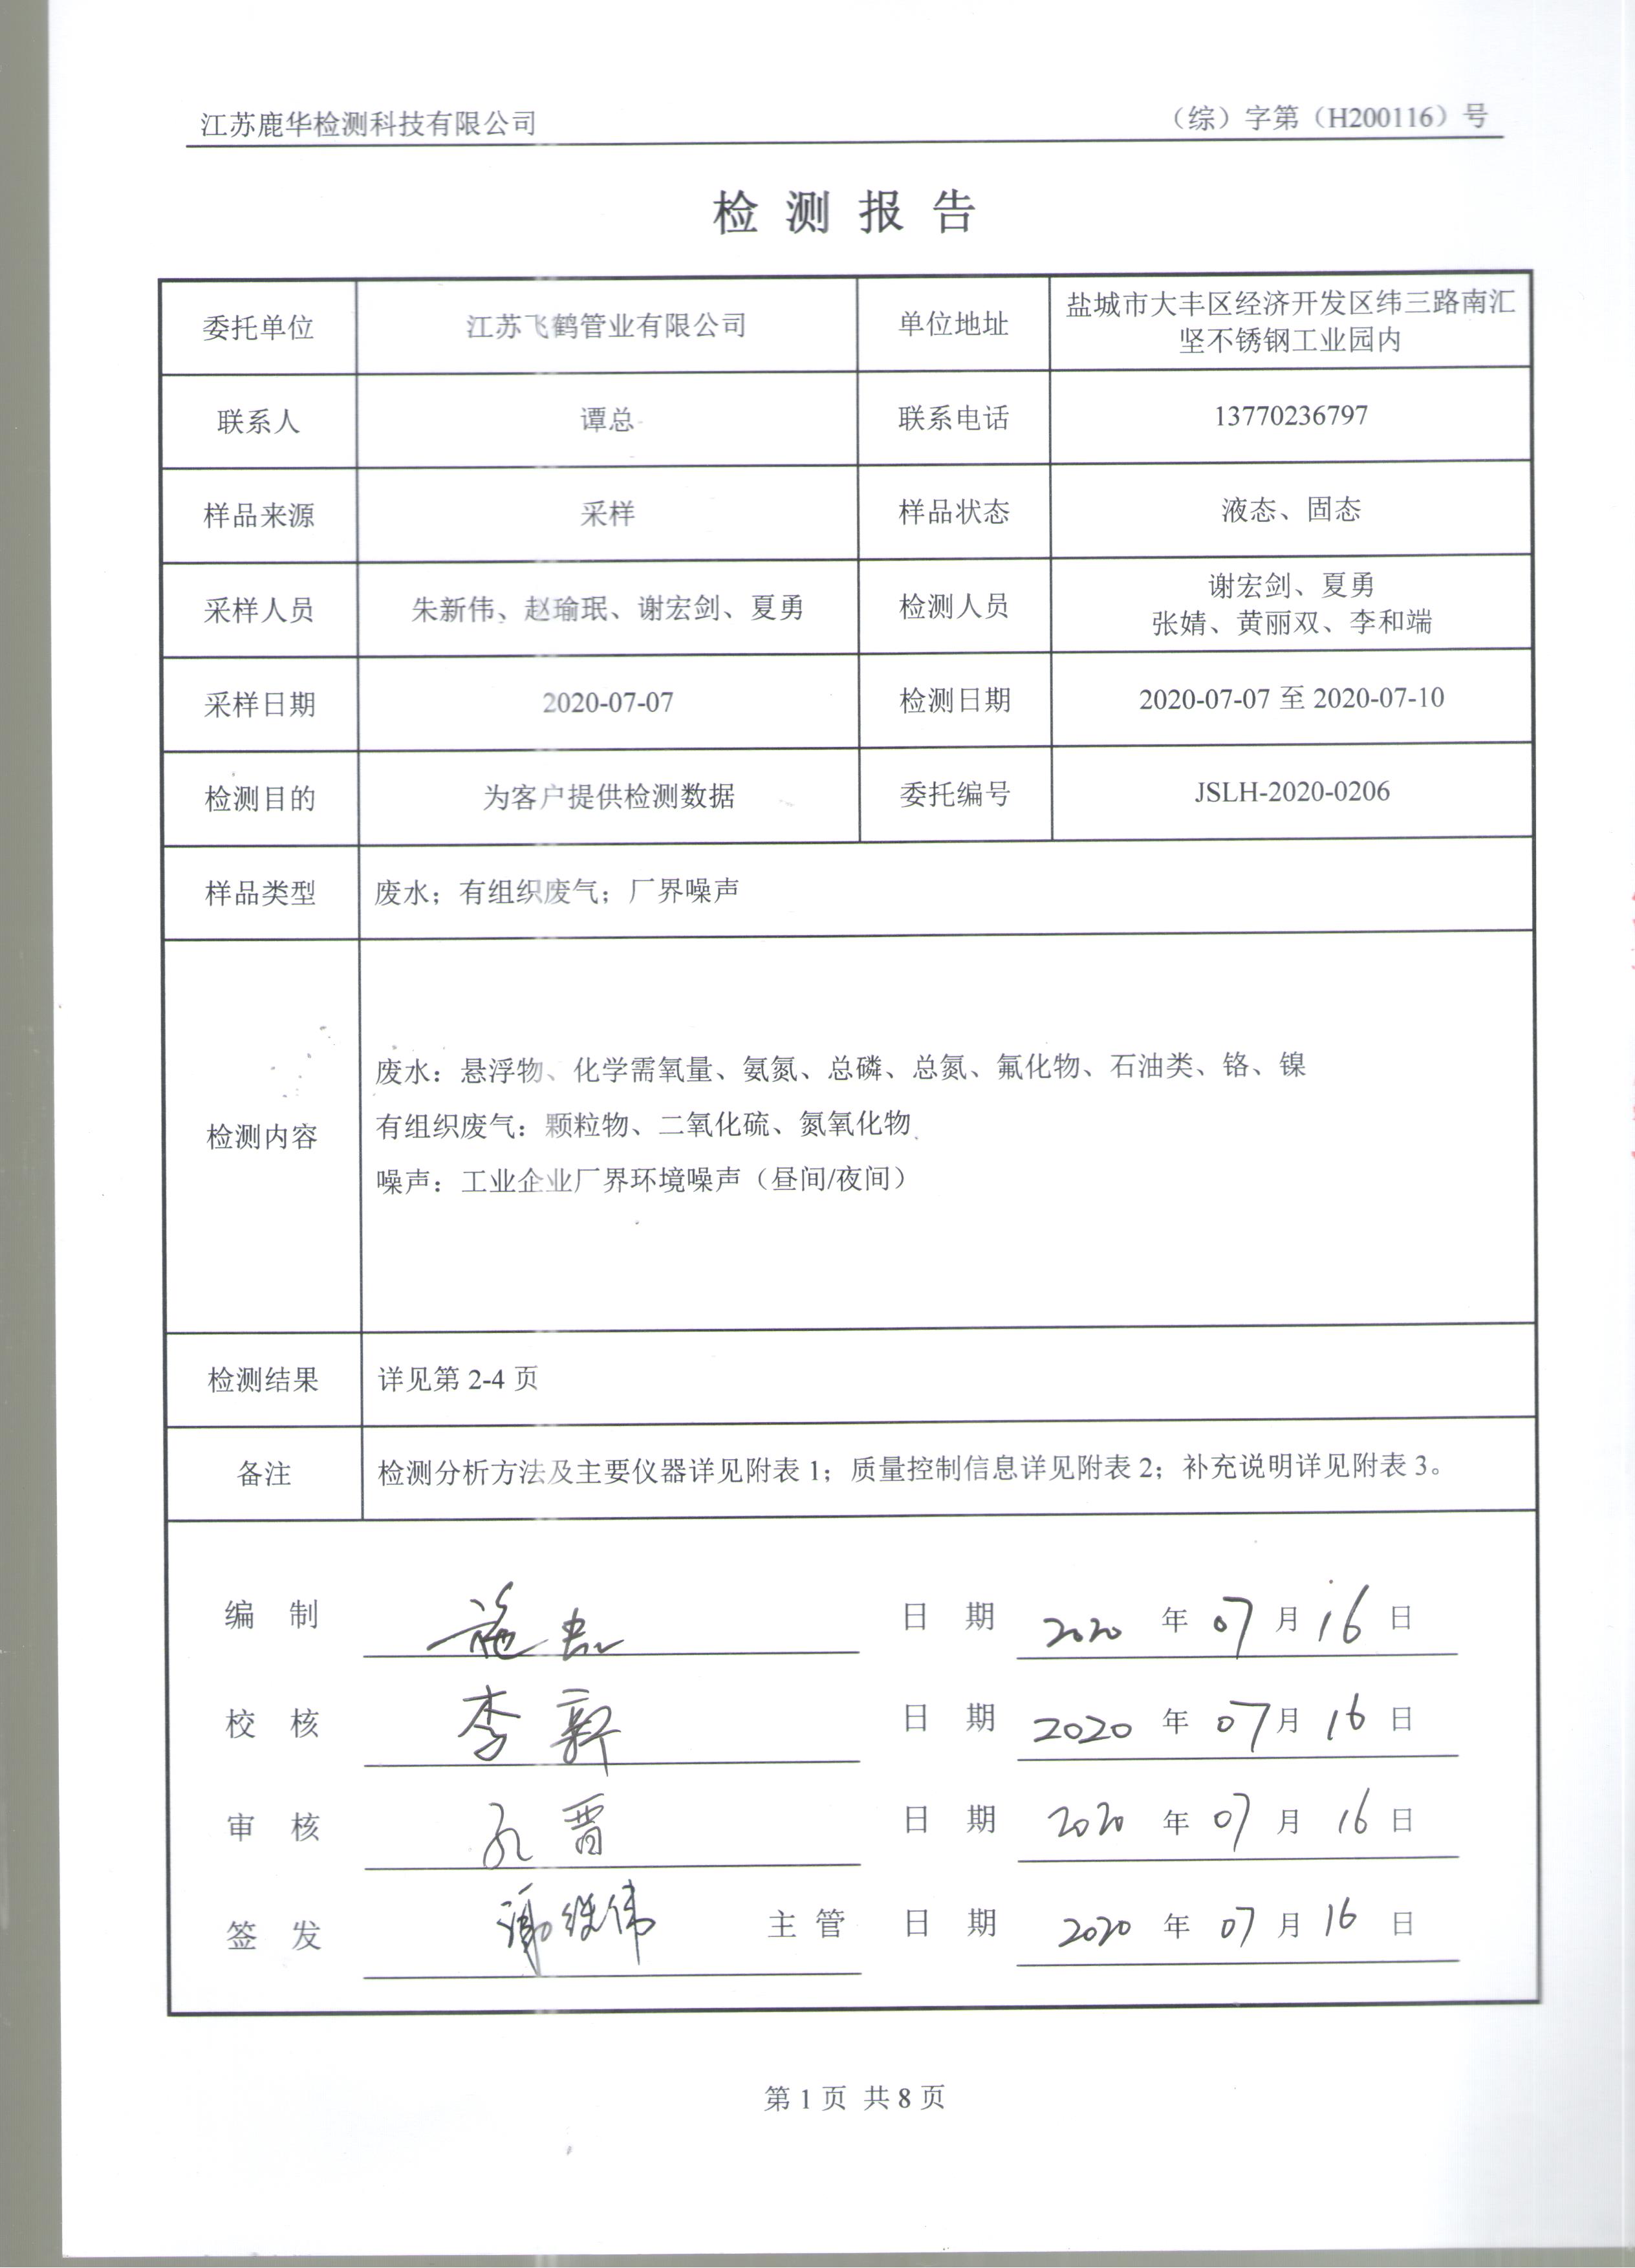 江苏鹿华检测科技有限公司 （综）字第（H200116）号
检 测 报 告
委托单位 江苏飞鹤管业有限公司 单位地址 盐城市大丰区经济开发区纬三路南汇
坚不锈钢工业园内
联系人 谭总 联系电话 13770236797
样品来源 采样 样品状态 液态、固态
采样人员 朱新伟、赵瑜珉、谢宏剑、夏勇 检测人员 谢宏剑、夏勇
张婧、黄丽双、李和端
采样日期 2020-07-07 检测日期 2020-07-07 至 2020-07-10
检测目的 为客户提供检测数据 委托编号 JSLH-2020-0206
样品类型 废水；有组织废气；厂界噪声
检测内容
废水：悬浮物、化学需氧量、氨氮、总磷、总氮、氟化物、石油类、铬、镍
有组织废气：颗粒物、二氧化硫、氮氧化物
噪声：工业企业厂界环境噪声（昼间/夜间）
检测结果 详见第 2-4 页
备注 检测分析方法及主要仪器详见附表 1；质量控制信息详见附表 2；补充说明详见附表 3。
编 制 施 日 期 2020 年 07 月 16 日
校 核 李新 日 期 2020 年 07 月 16 日
审 核 孔晋 日 期 2020 年 07 月 16 日
签 发 谢继伟 主管 日 期 2020 年 07 月 16 日
第 1 页 共 8 页